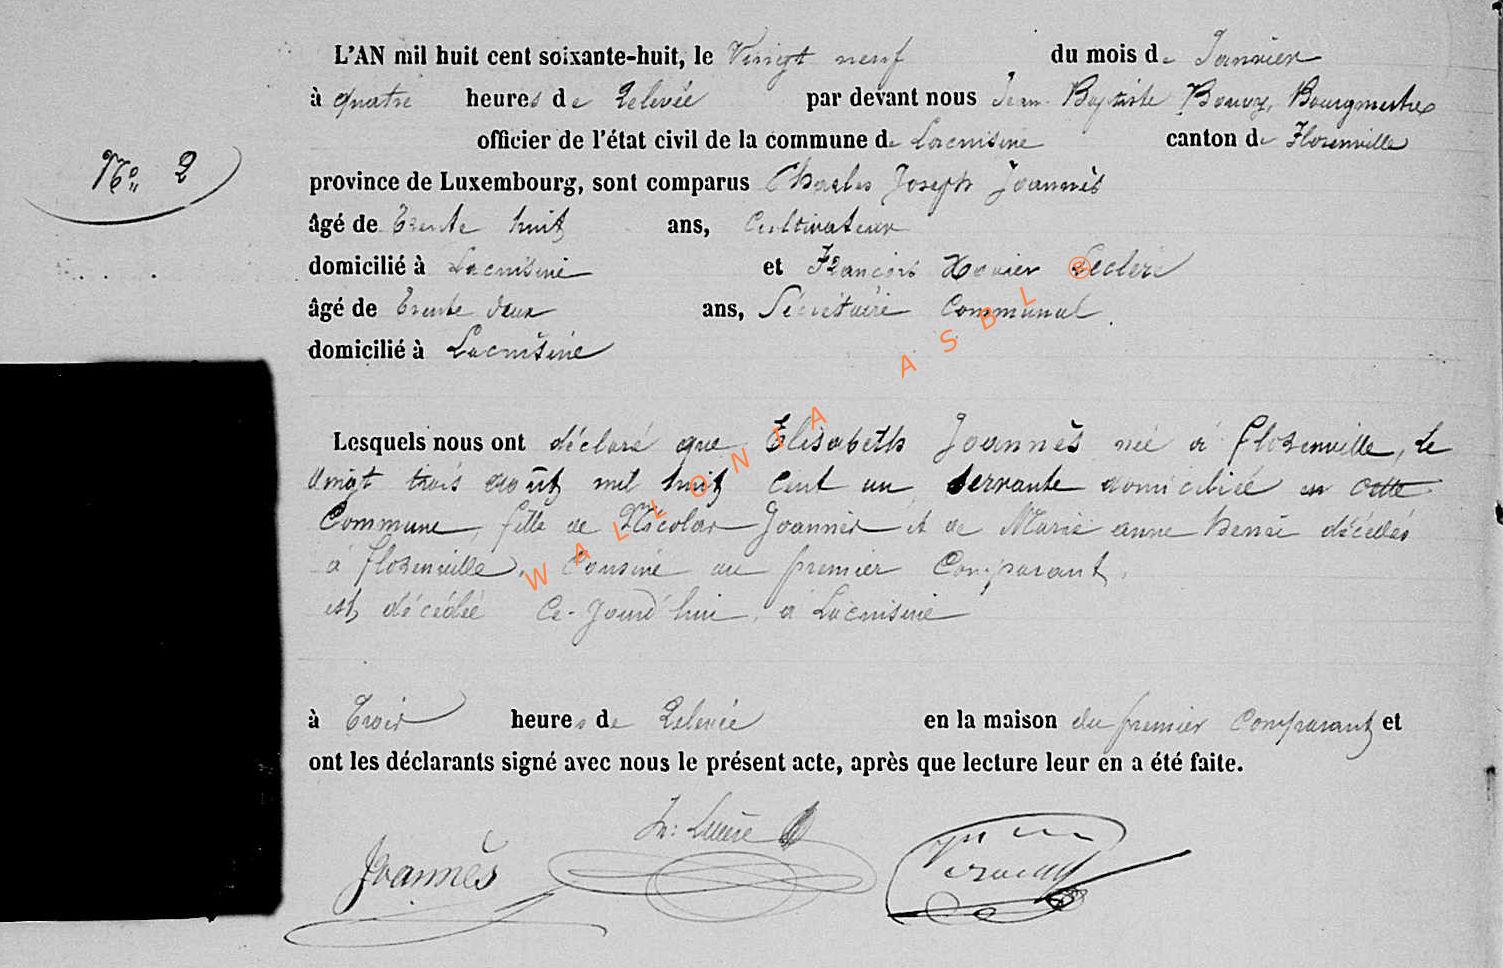 L'AN mil huit cent soixante-huit, le Vingt neuf du mois de Janvier
à quatre heures de Relevée par devant nous Jean Baptiste Bouvy, Bourgmestre
officier de l'état civil de la commune de Lacuisine canton de Florenville
N° 2
province de Luxembourg, sont comparus Charles Joseph Joannès
âgé de Trente huit ans, Cultivateur
domicilié à Lacuisine et François Xavier Leclère
âgé de Trente deux ans, Sécrétaire Communal.
domicilié à Lacuisine
Lesquels nous ont déclaré que Elisabeth Joannès née à florenville, le
vingt trois août mil huit cent un, servante domiciliée en cette
Commune, fille de Nicolas Joannès et de Marie anne henri décédés
à florenville, Cousine au premier Comparant,
est décédée Ce-jourd'hui, à Lacuisine
à Trois heures de Relevée en la maison du premier Comparant et
ont les déclarants signé avec nous le présent acte, après que lecture leur en a été faite.
Joannès
WALLONIA ASBL ®